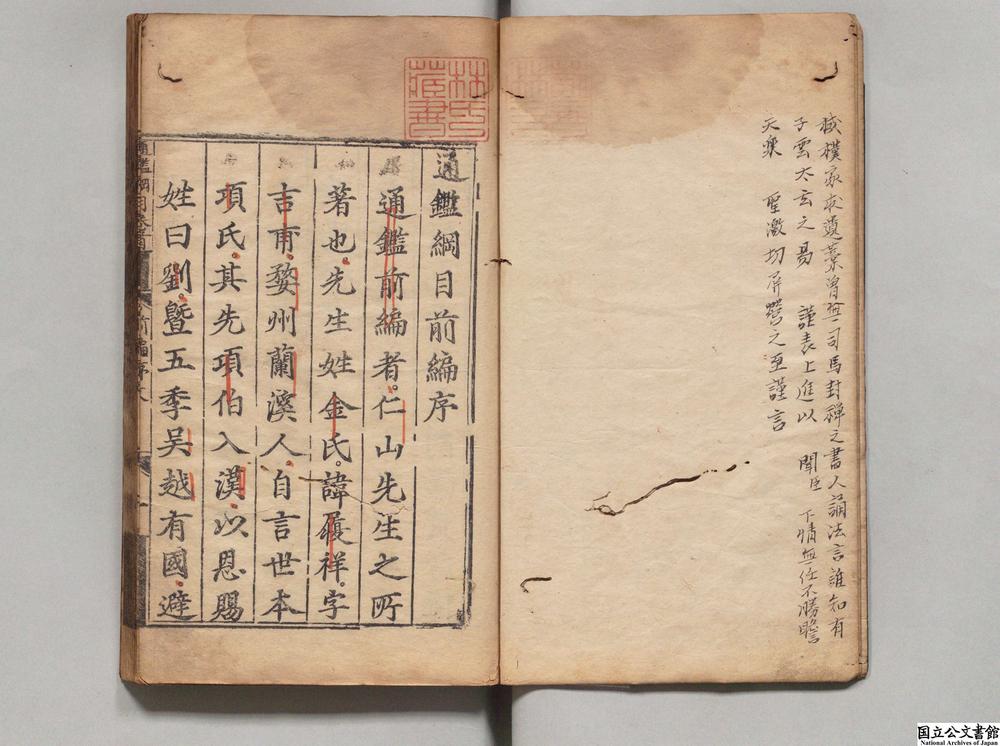 棫樸家求遺藁曾無司馬封禪之書人誦法言誰知有
子雲太玄之易 謹表上進以 聞臣 下情無任不勝瞻
天樂 聖激切屏營之至謹言
林氏
藏書
通鑑綱目前編序
通鑑前編者仁山先生之所
著也先生姓金氏諱履祥字
吉甫婺州蘭溪人自言世本
項氏其先項伯入漢以恩賜
姓曰劉曁五季吳越有國避
國立公文書館
National Archives of Japan